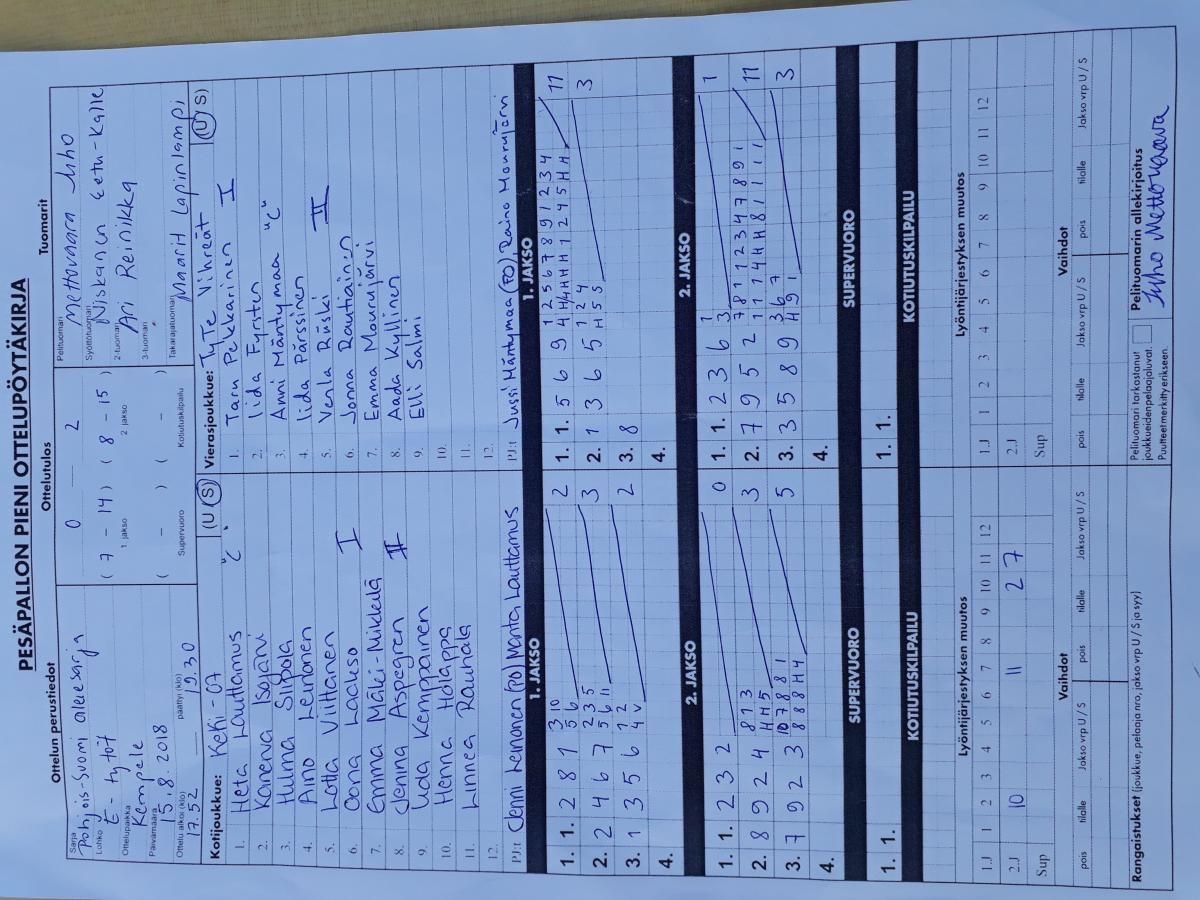 PESÄPALLON PIENI OTTELUPÖYTÄKIRJA
Ottelun perustiedot
Ottelutulos
Tuomarit
Sarja
Pohjois-Suomi aluesarja
Lohko
E-tytöt
Ottelupaikka
Kempele
Päivämäärä
15.8.2018
Ottelu alkoi (klo)
17.52
päättyi (klo)
19.30
0 — 2
( 7 - 14 ) ( 8 - 15 )
1 jakso
2 jakso
( - ) ( - )
Supervuoro
Kotiutuskilpailu
Pelituomari
Mettovaara Juho
Syöttötuomari
Niskanen Eetu-Kalle
2-tuomari
Ari Reinikka
3-tuomari
Takarajatuomari
Maarit Lapinlampi
Kotijoukkue: Keki-07 (U / S)
1. Heta Lauttamus "C"
2. Kanerva Isojärvi
3. Hulma Siipola
4. Aino Leinonen
5. Lotta Viiltanen
6. Oona Laakso I
7. Emma Mäki-Mikkelä
8. Jenina Aspegren II
9. Uda Kemppainen
10. Henna Holappa
11. Linnea Rauhala
12.
PJ:t Jenni Leinonen (PO) Manta Lauttamus
Vierasjoukkue: TyTe Vihreät (U / S)
1. Taru Pekkarinen I
2. Iida Fyrsten
3. Anni Mäntymaa "C"
4. Iida Pärssinen
5. Venla Riiski II
6. Jonna Rautiainen
7. Emma Mourujärvi
8. Aada Kyllinen
9. Elli Salmi
10.
11.
12.
PJ:t Jussi Mäntymaa (PO), Raino Mourujärvi
1. JAKSO
1. 1. 2 8 1 5 6 2
2. 2 4 6 7 3
3. 1 3 5 6 2
4.
1. JAKSO
1. 1. 5 6 9 11
2. 1 3 6 5 3
3. 8
4.
2. JAKSO
1. 1. 2 3 2 0
2. 8 9 2 4 3
3. 7 9 2 3 5
4.
2. JAKSO
1. 1. 2 3 6 1
2. 7 9 5 2 11
3. 3 5 8 9 3
4.
SUPERVUORO
1. 1.
SUPERVUORO
1. 1.
KOTIUTUSKILPAILU
KOTIUTUSKILPAILU
Lyöntijärjestyksen muutos
1.J 1 2 3 4 5 6 7 8 9 10 11 12
2.J 10 11 2 7
Sup
Lyöntijärjestyksen muutos
1.J 1 2 3 4 5 6 7 8 9 10 11 12
2.J
Sup
Vaihdot
pois tilalle Jakso vrp U / S pois tilalle Jakso vrp U / S
Vaihdot
pois tilalle Jakso vrp U / S pois tilalle Jakso vrp U / S
Rangaistukset (joukkue, pelaaja nro, jakso vrp U / S ja syy)
Pelituomari tarkastanut
joukkueiden pelaajaluvat:
Puutteet merkitty erikseen.
Pelituomarin allekirjoitus
Juho Mettovaara